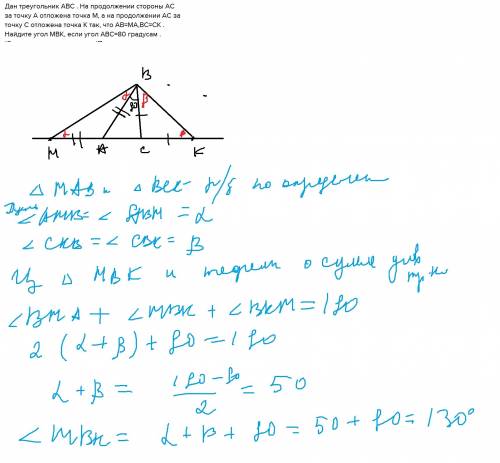 Дан треугольник АВС . На продолжении стороны АС
за точку А отложена точка М, а на продолжении АС за
точку С отложена точка К так, что АВ=МА,ВС=СК .
Найдите угол МВК, если угол АВС=80 градусам .
B
α 80 β
α β
M A C K
△ MAB и △ BCK р/б по определен
Пусть
∠AMB = ∠ ABM = α
∠ CKB = ∠ CBK = β
Из △ MBK и теорем о сумме углов
тр-ка
∠BMA + ∠MBK + ∠BKM = 180
2 (α + β) + 80 = 180
α + β = (180 - 80)/2 = 50
∠ MBK = α + β + 80 = 50 + 80 = 130°